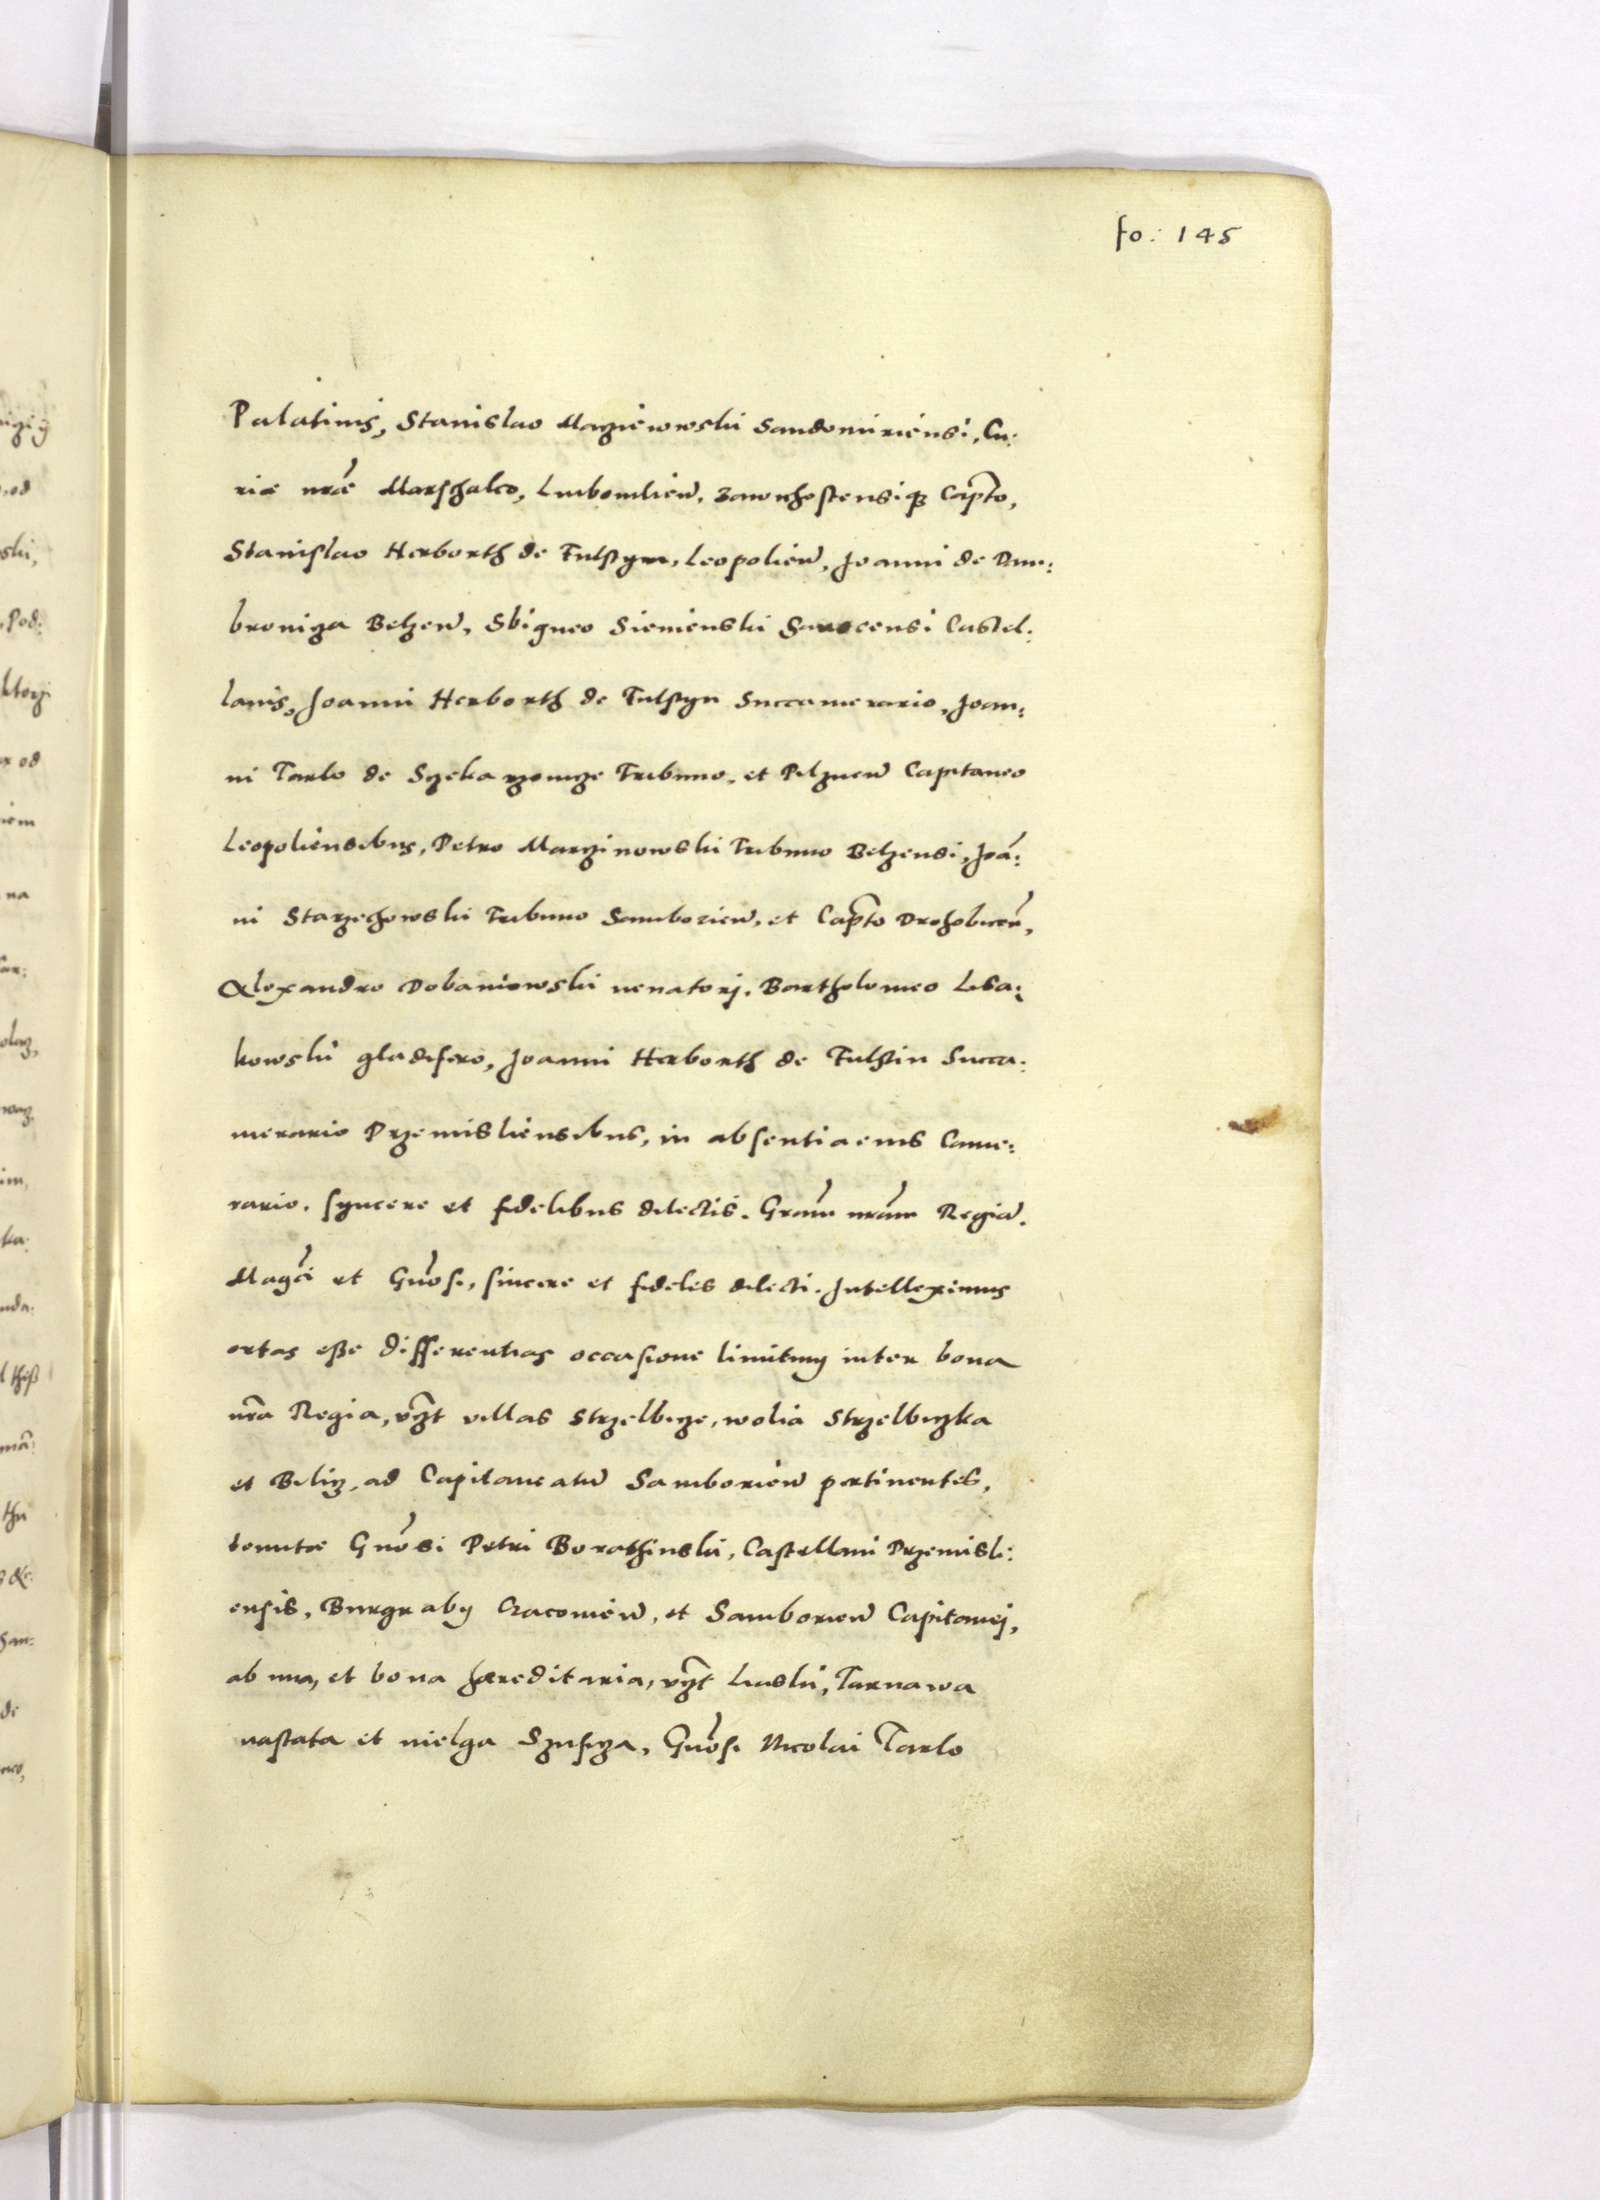 fo: 145
Palatinis, Stanislao Macziewowski Sandomiriensi, Cu:
riæ nræ Marschalco, Luboml̄ien̄, Zawichostensiqʒ Capt̄o,
Stanislao Herborth de Fulstyn, Leopolien̄, Joanni de Dam:
browiza Belzen̄, Sbigneo Siemienski Sanocensi Castel:
lanis, Joanni Herborth de Fulstyn Succamerario, Joan:
ni Tarlo de Szekarzowize Tribuno, et Pilznen̄ Capitaneo
Leopoliensibus, Petro Marzinowski Tribuno Belzensi, Joā:
ni Starzechowski Tribuno Samborien̄, et Capt̄o Drohobicen̄,
Alexandro Dobaniowski venatorj, Bartholomeo Lisa:
kowski gladifero, Joanni Herborth de Fulstin Succa:
merario Przemisliensibus, in absentia eius Came:
rario. syncere et fidelibus dilectis. Grām nrām Regiā.
Magci et Gnōsi, sincere et fideles dilecti. Intelleximus
ortas esse differentias occasione limitum inter bona
nrā Regia, vzt villas Strzelbize, Wolia Strzelbizka
et Biliz, ad Capitaneatū Samborien̄ pertinentes,
tenutæ Gnōsi Petri Borathinski, Castellani Przemisli:
ensis, Burgrabÿ Cracovien̄, et Samborien̄ Capitanej,
ab una, et bona hæreditaria, vzt Luski, Tarnawa
vastata et nielga Szusiza, Gnōsi Nicolai Tarlo